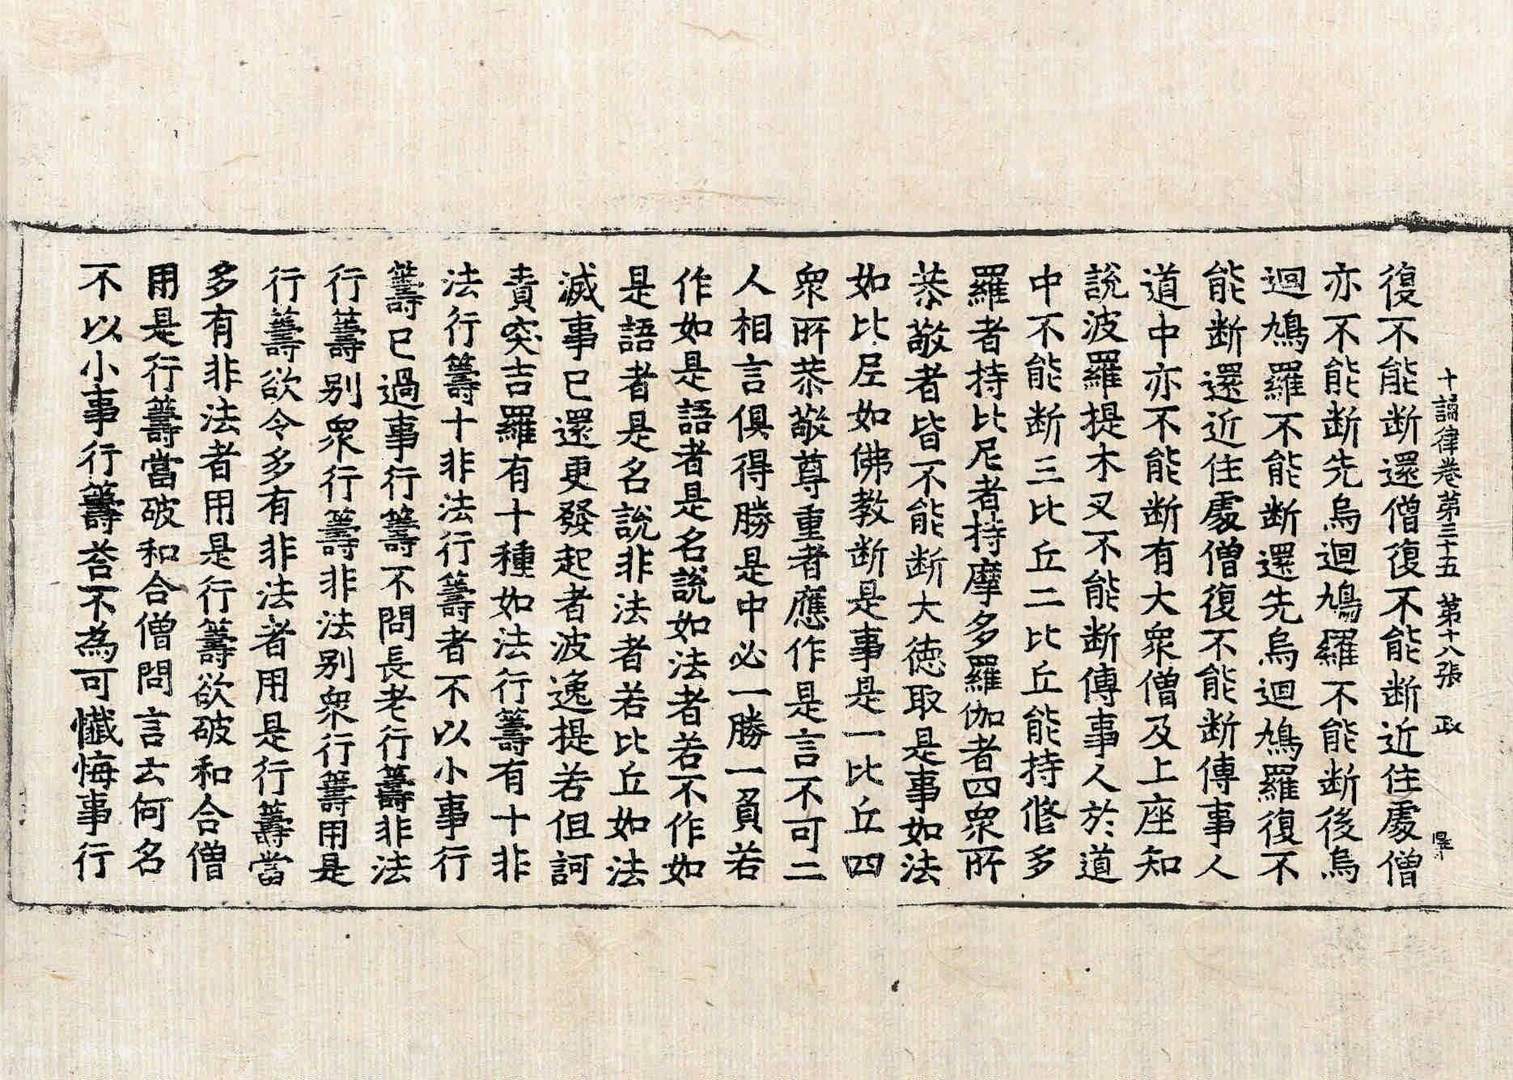 十誦律卷第三十五 第十八張 政
復不能断還僧復不能断近住處僧
亦不能断先烏迴鳩羅不能断後烏
迴鳩羅不能断還先烏迴鳩羅復不
能断還近住處僧復不能断傳事人
道中亦不能断有大衆僧及上座知
說波羅提木叉不能断傳事人於道
中不能断三比丘二比丘能持修多
羅者持比尼者持摩多羅伽者四衆所
恭敬者皆不能断大徳取是事如法
如比尼如佛教断是事是一比丘四
衆所恭敬尊重者應作是言不可二
人相言俱得勝是中必一勝一負若
作如是語者是名說如法者若不作如
是語者是名說非法者若比丘如法
滅事已還更發起者波逸提若但訶
責突吉羅有十種如法行籌有十非
法行籌十非法行籌者不以小事行
籌已過事行籌不問長老行籌非法
行籌別衆行籌非法別衆行籌用是
行籌欲令多有非法者用是行籌當
多有非法者用是行籌欲破和合僧
用是行籌當破和合僧問言云何名
不以小事行籌荅不為可懺悔事行